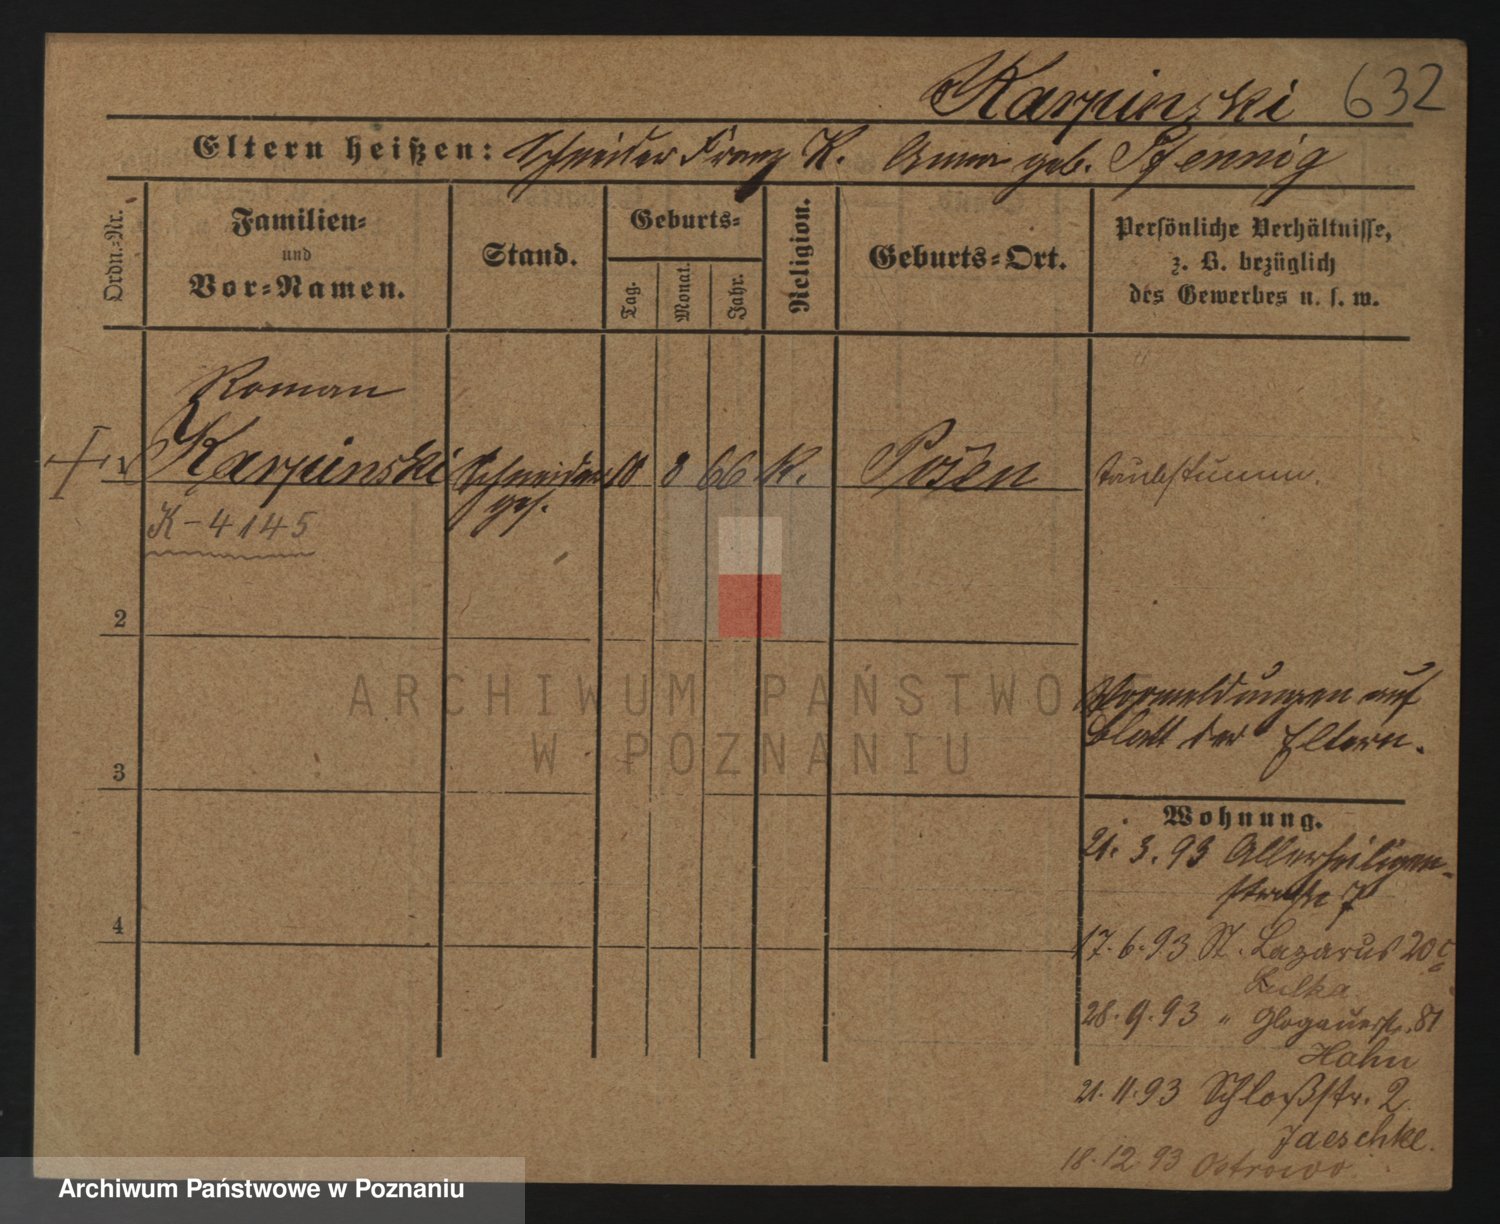 Karpinski 632
Eltern heißen: Schneider Franz K. Anna geb. Pfennig
Ordn.-Nr.
Familien-
und
Vor-Namen.
Stand.
Geburts-
Tag.
Monat.
Jahr.
Religion.
Geburts-Ort.
Persönliche Verhältnisse,
z. B. bezüglich
des Gewerbes u. s. w.
Roman
1 Karpinski Schneider 10 8 66 K. Posen taubstumm.
ges.
K-4145
2
3
4
Vormeldungen auf
Blatt der Eltern.
Wohnung.
21. 3. 93 Allerheiligen-
straße 7
17. 6. 93 St. Lazarus 20c
Kulka
28. 9. 93 " Glogauerstr. 81
Hahn
21. 11. 93 Schloßstr. 2
Jaeschke.
18. 12 93 Ostrowo.
ARCHIWUM PAŃSTWOWE
W POZNANIU
Archiwum Państwowe w Poznaniu